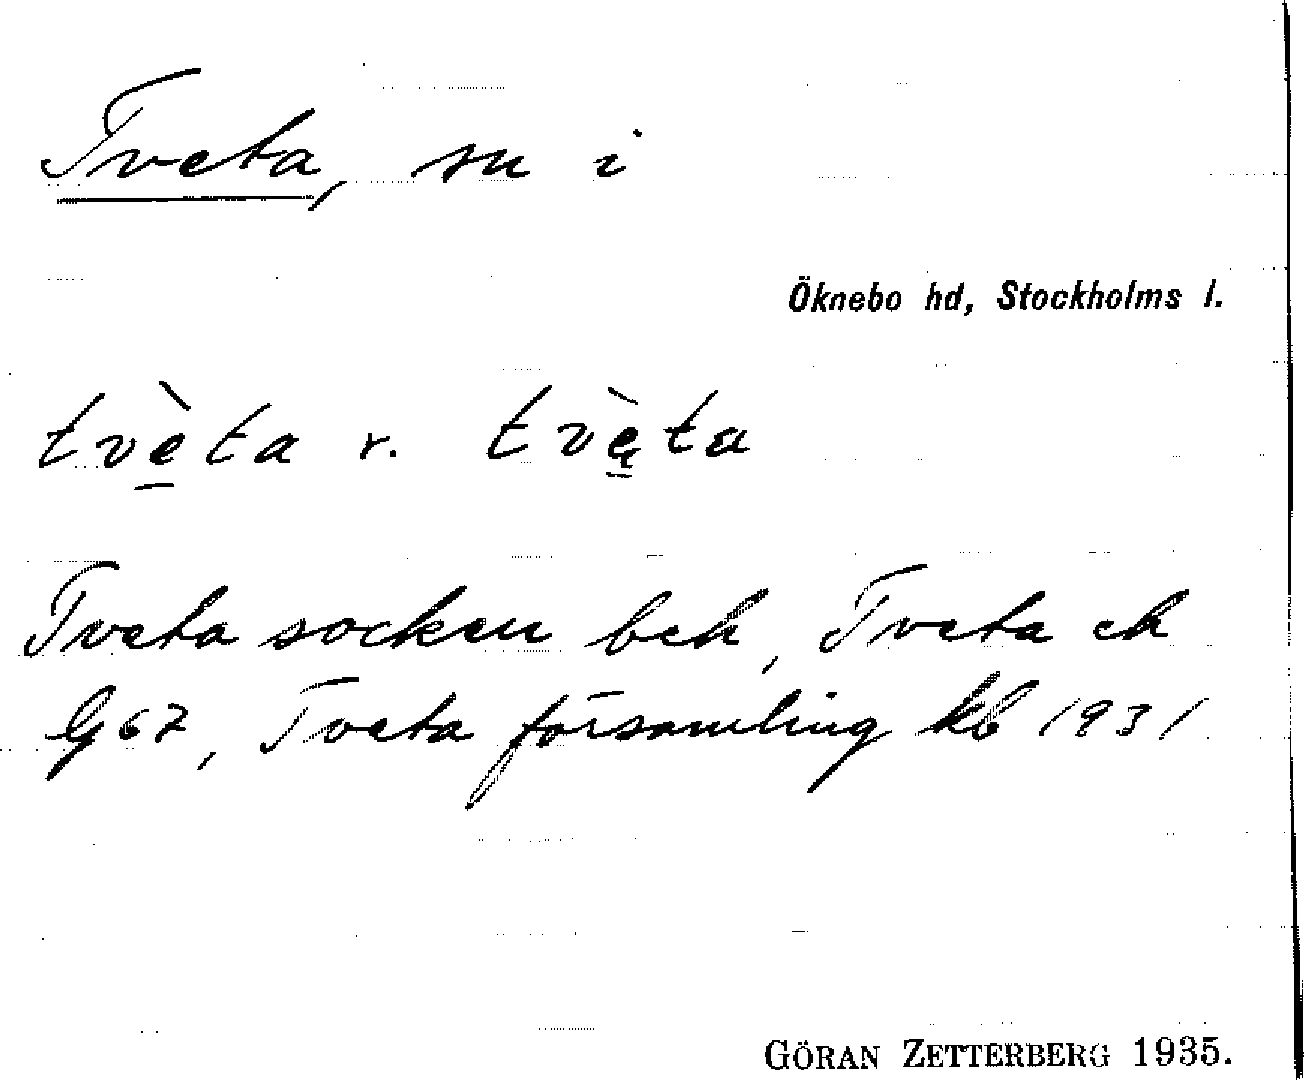 Tveta, sn i
Öknebo hd, Stockholms l.
tvè̱ta r. tvę̱̀ta
Tveta socken beh, Tveta ek
G67, Tveta församling kb 1931
GÖRAN ZETTERBERG 1935.